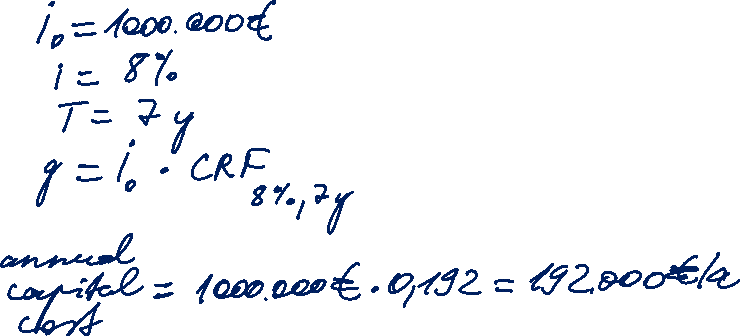 i₀ = 1000.000€
i = 8%
T = 7 y
g = i₀ · CRF 8%, 7y
annual
capital = 1000.000€ · 0,192 = 192.000€/a
cost